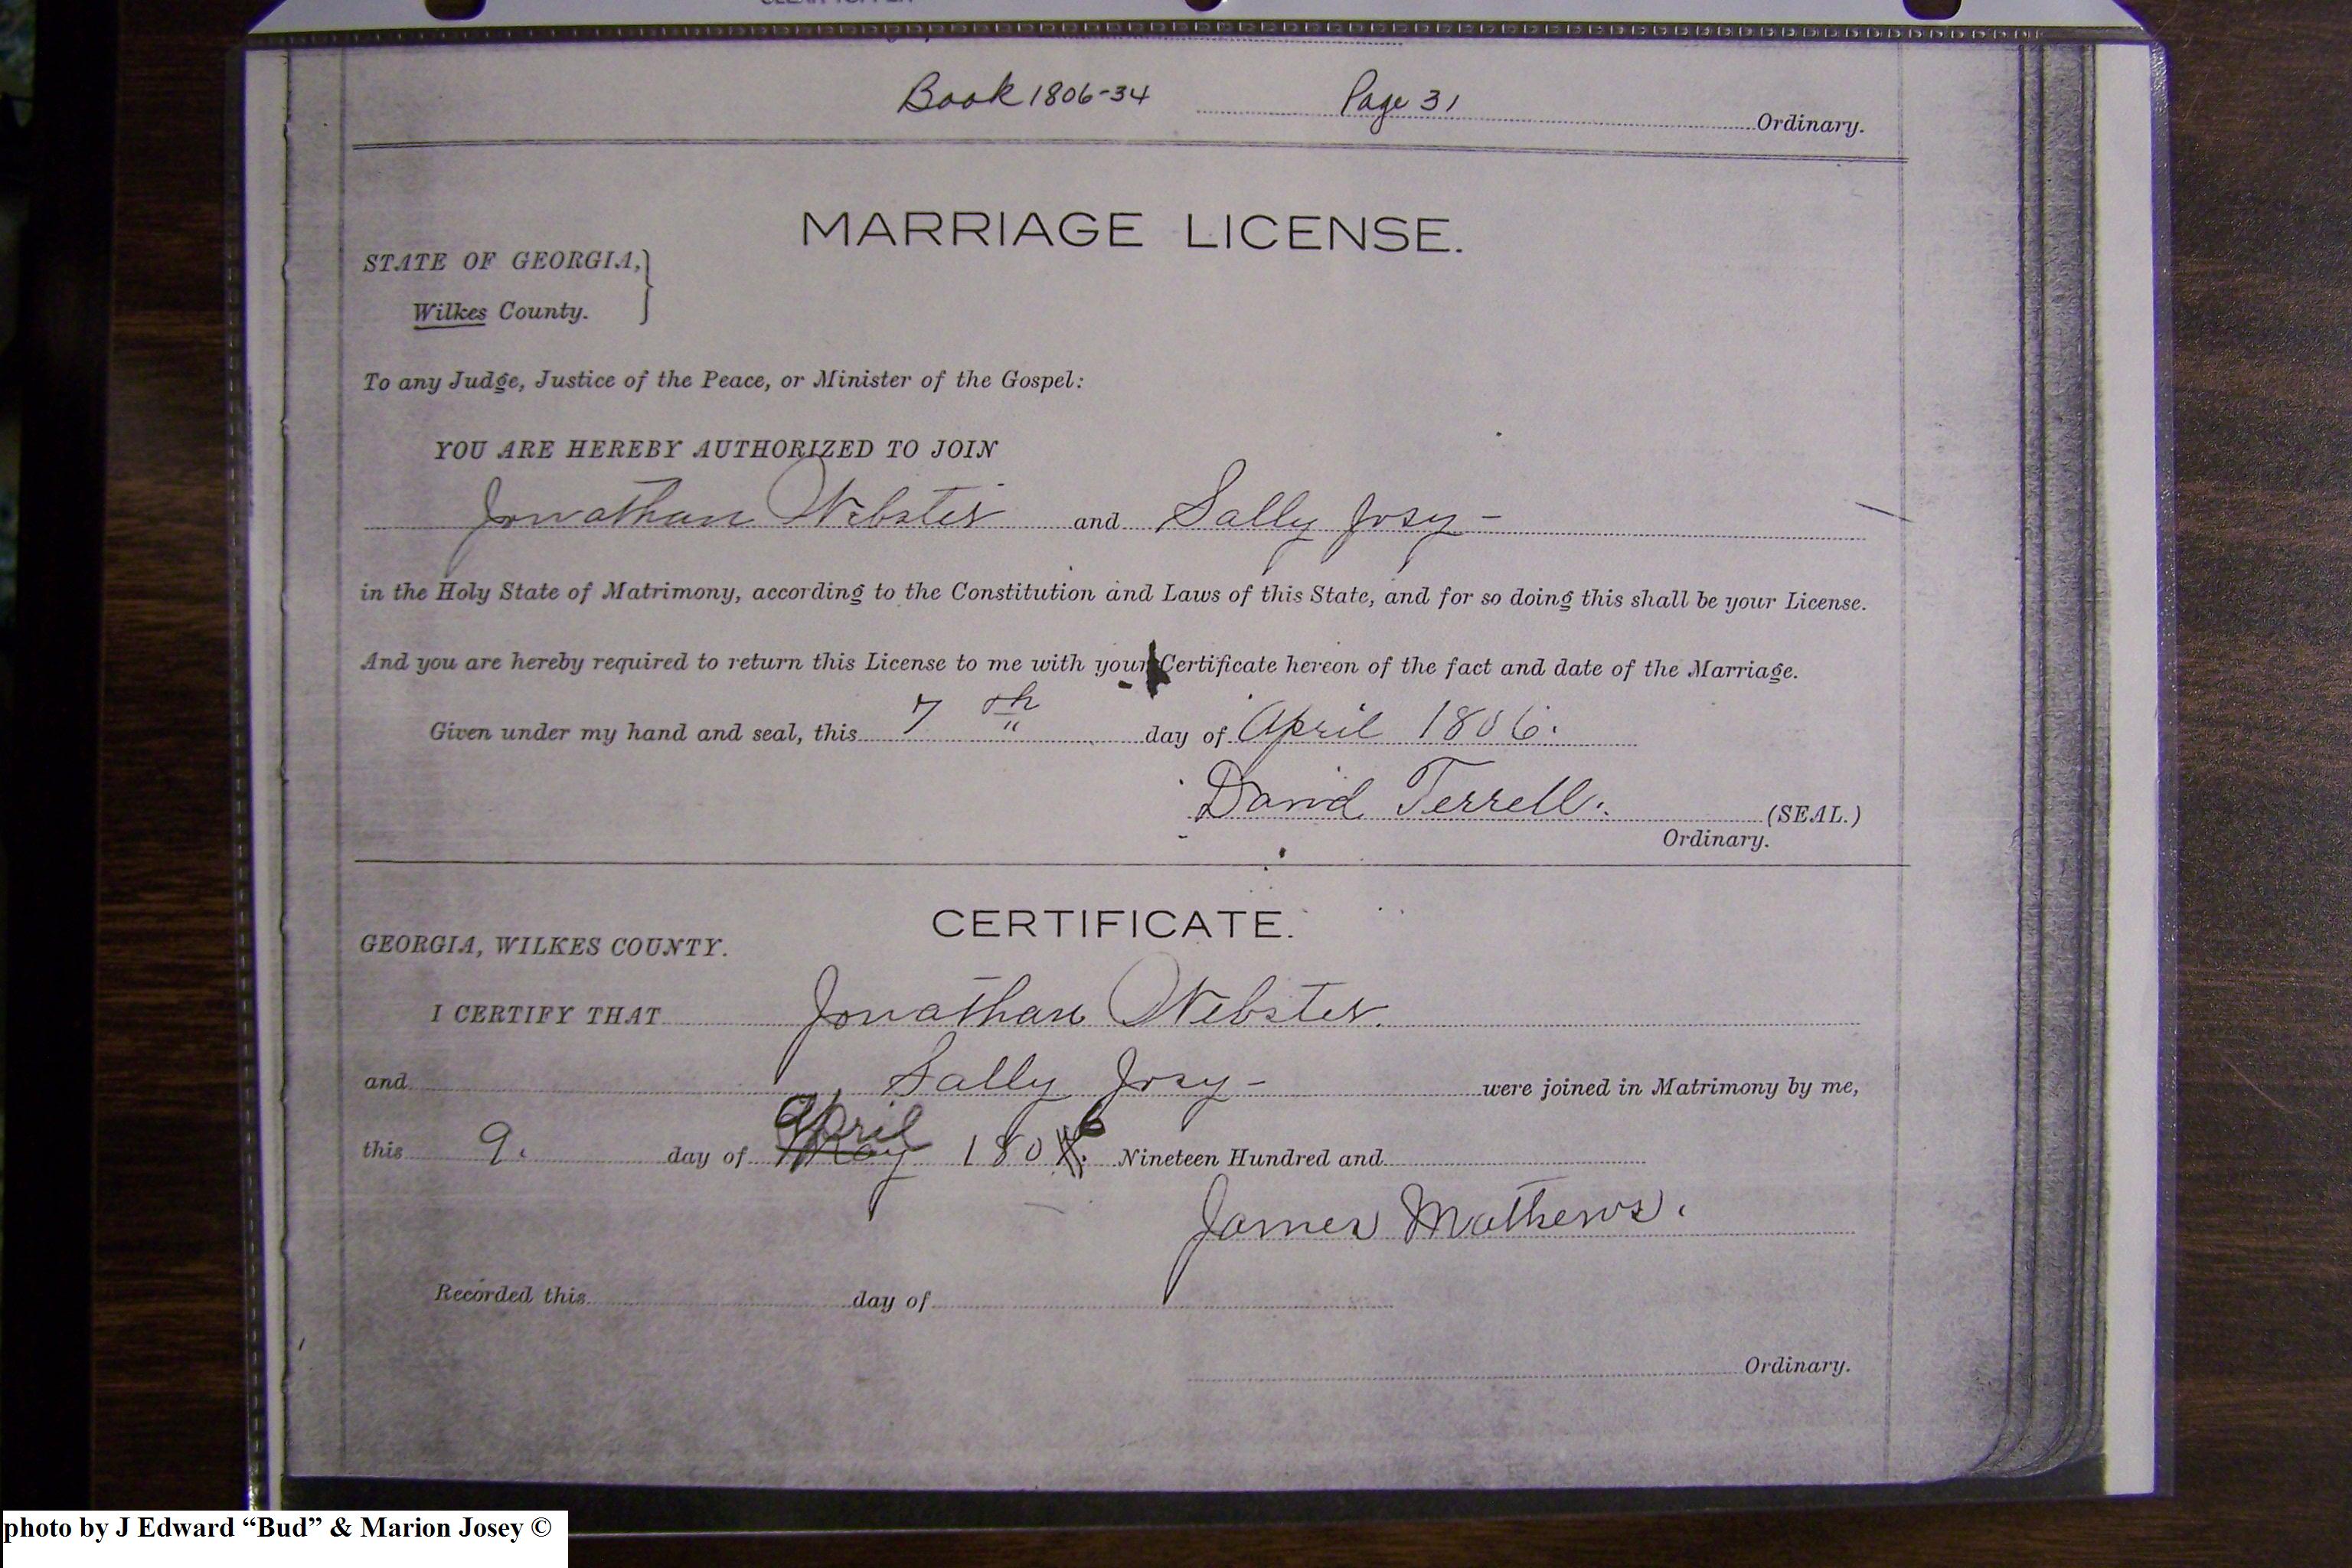 Book 1806-34 Page 31 Ordinary.
MARRIAGE LICENSE.
STATE OF GEORGIA,
Wilkes County.
To any Judge, Justice of the Peace, or Minister of the Gospel:
YOU ARE HEREBY AUTHORIZED TO JOIN
Jonathan Webster and Sally Josy -
in the Holy State of Matrimony, according to the Constitution and Laws of this State, and for so doing this shall be your License.
And you are hereby required to return this License to me with your Certificate hereon of the fact and date of the Marriage.
Given under my hand and seal, this 7th day of April 1806.
David Terrell. (SEAL.)
Ordinary.
CERTIFICATE.
GEORGIA, WILKES COUNTY.
I CERTIFY THAT Jonathan Webster.
and Sally Josy - were joined in Matrimony by me,
April
this 9. day of May 1806 Nineteen Hundred and
James Mathews.
Recorded this day of
Ordinary.
photo by J Edward “Bud” & Marion Josey ©